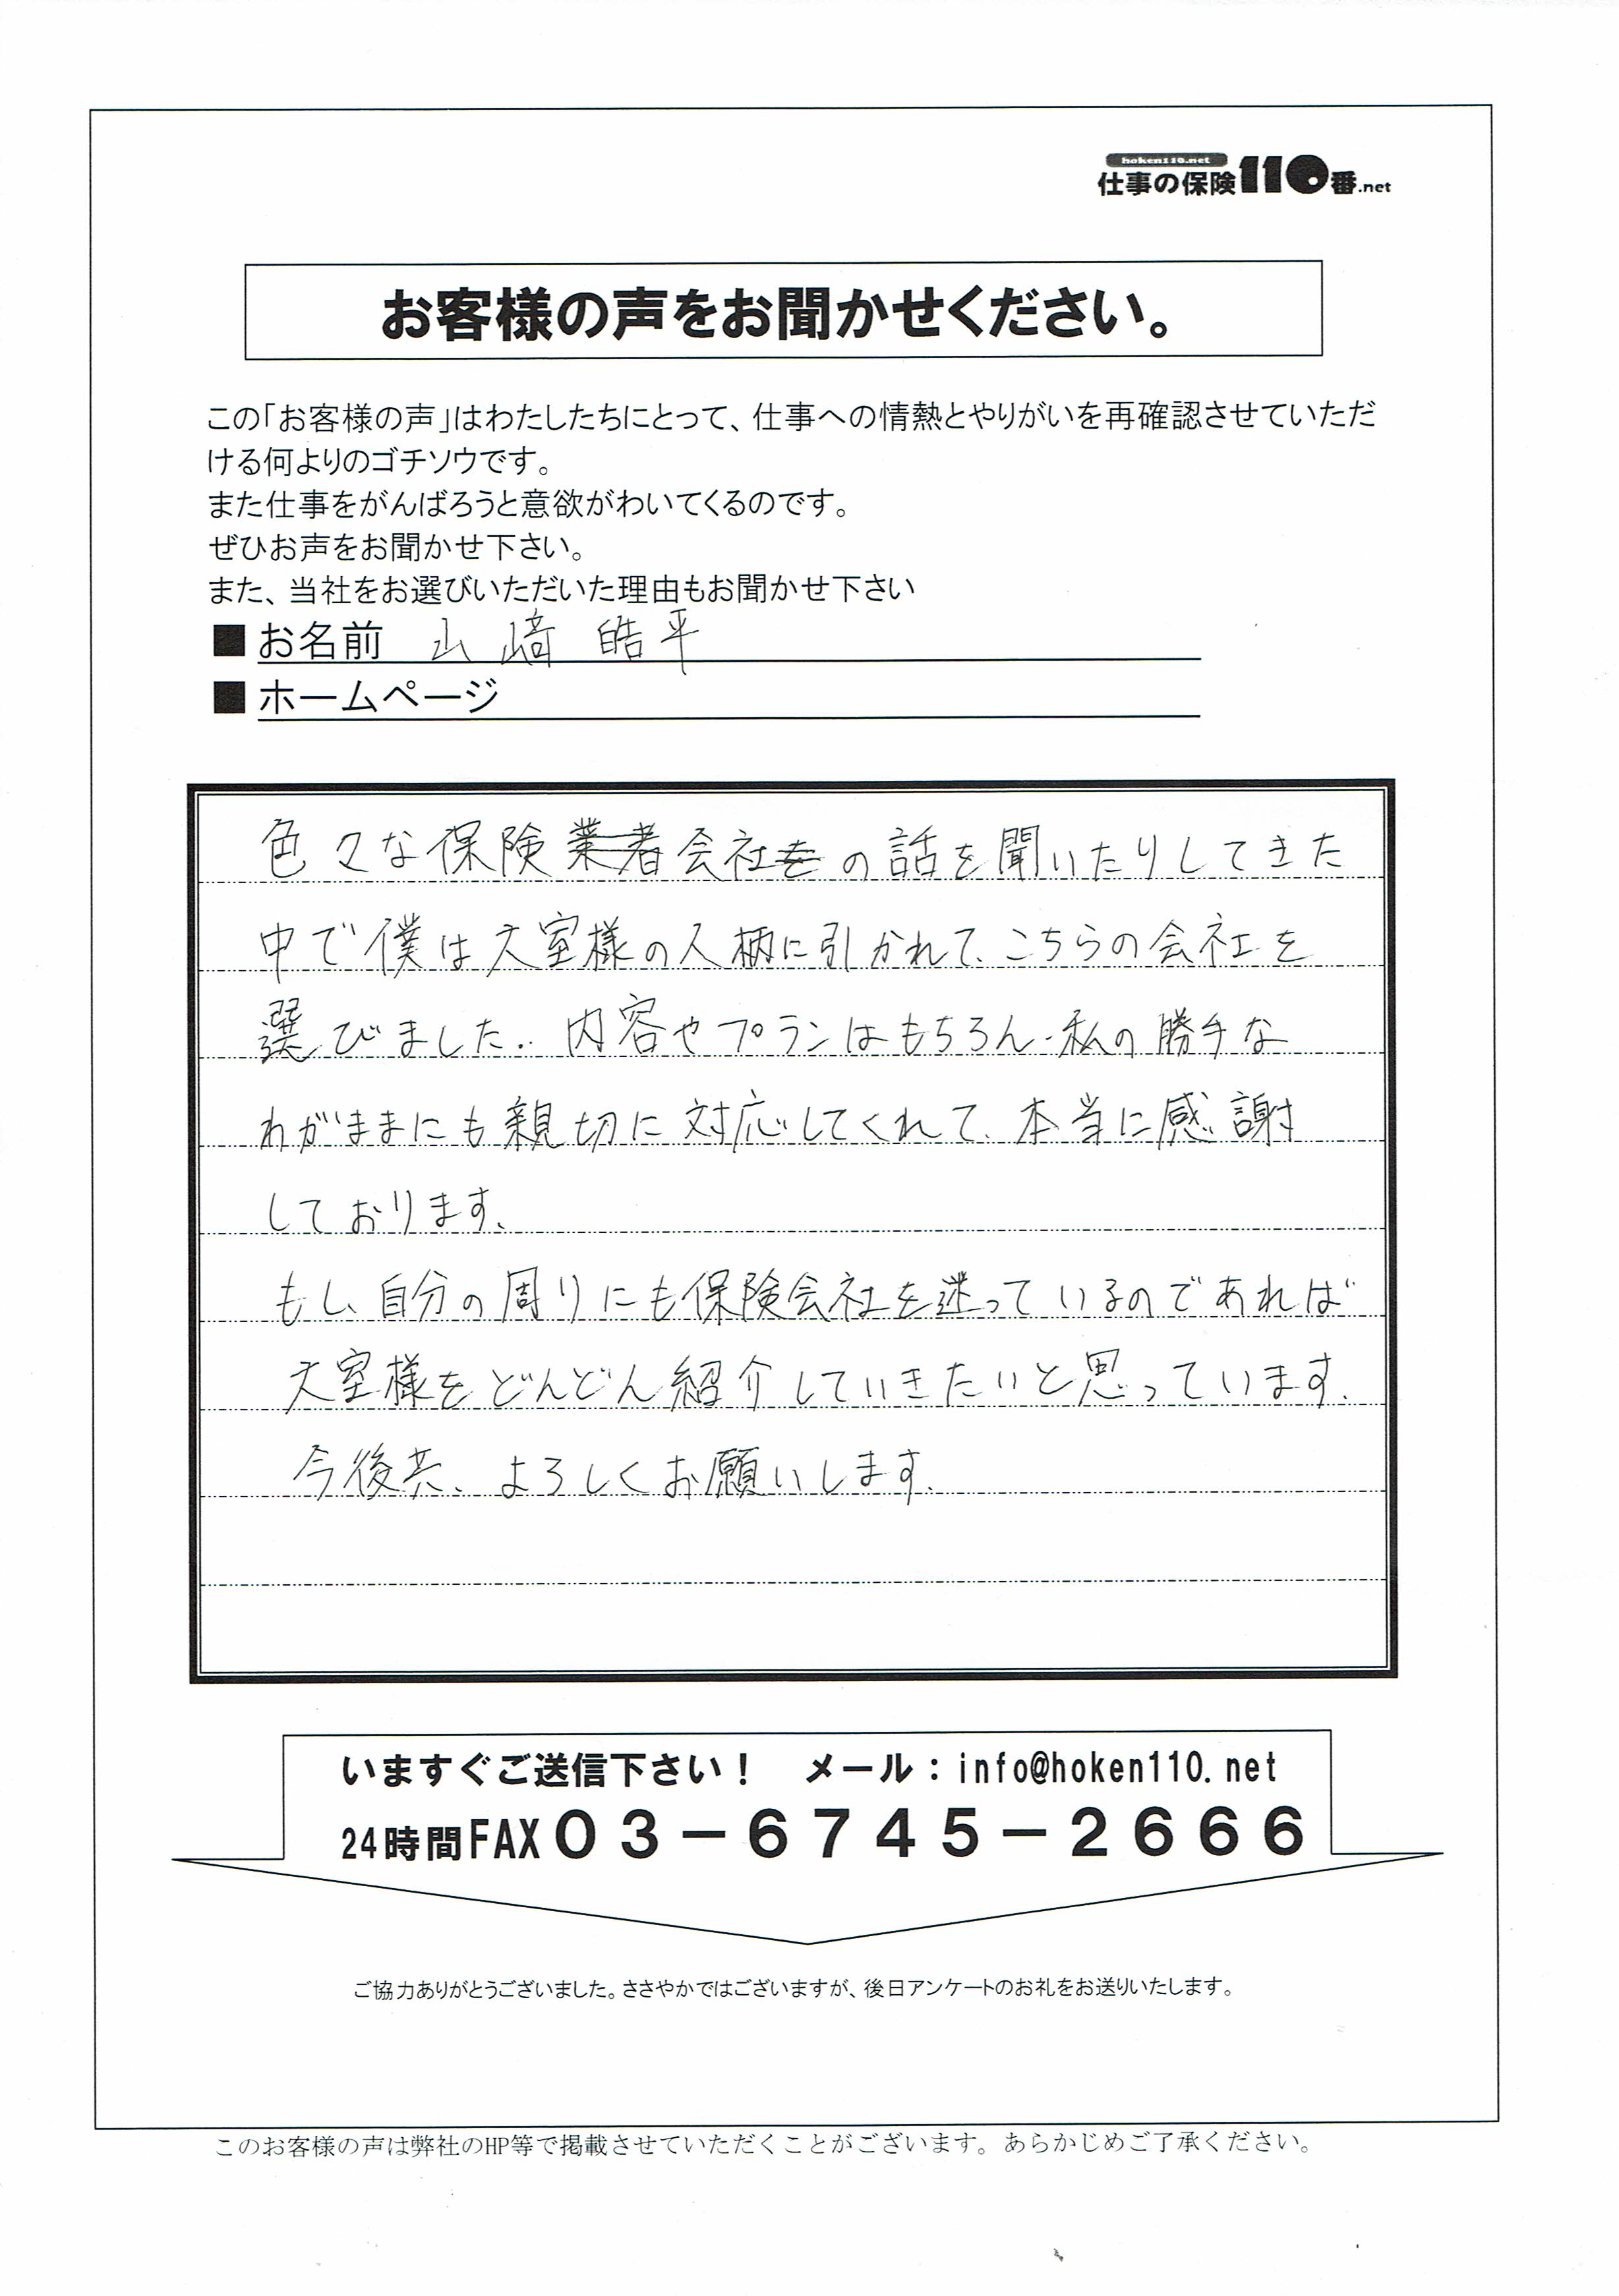 hoken110.net
仕事の保険110番.net
お客様の声をお聞かせください。
この「お客様の声」はわたしたちにとって、仕事への情熱とやりがいを再確認させていただ
ける何よりのゴチソウです。
また仕事をがんばろうと意欲がわいてくるのです。
ぜひお声をお聞かせ下さい。
また、当社をお選びいただいた理由もお聞かせ下さい
■お名前 山﨑 皓平
■ホームページ
色々な保険業者会社をの話を聞いたりしてきた
中で僕は大室様の人柄に引かれて、こちらの会社を
選びました。内容やプランはもちろん、私の勝手な
わがままにも親切に対応してくれて、本当に感謝
しております、
もし、自分の周りにも保険会社を迷っているのであれば
大室様をどんどん紹介していきたいと思っています、
今後共、よろしくお願いします、
いますぐご送信下さい！ メール：info@hoken110.net
24時間FAX０３－６７４５－２６６６
ご協力ありがとうございました。ささやかではございますが、後日アンケートのお礼をお送りいたします。
このお客様の声は弊社のHP等で掲載させていただくことがございます。あらかじめご了承ください。